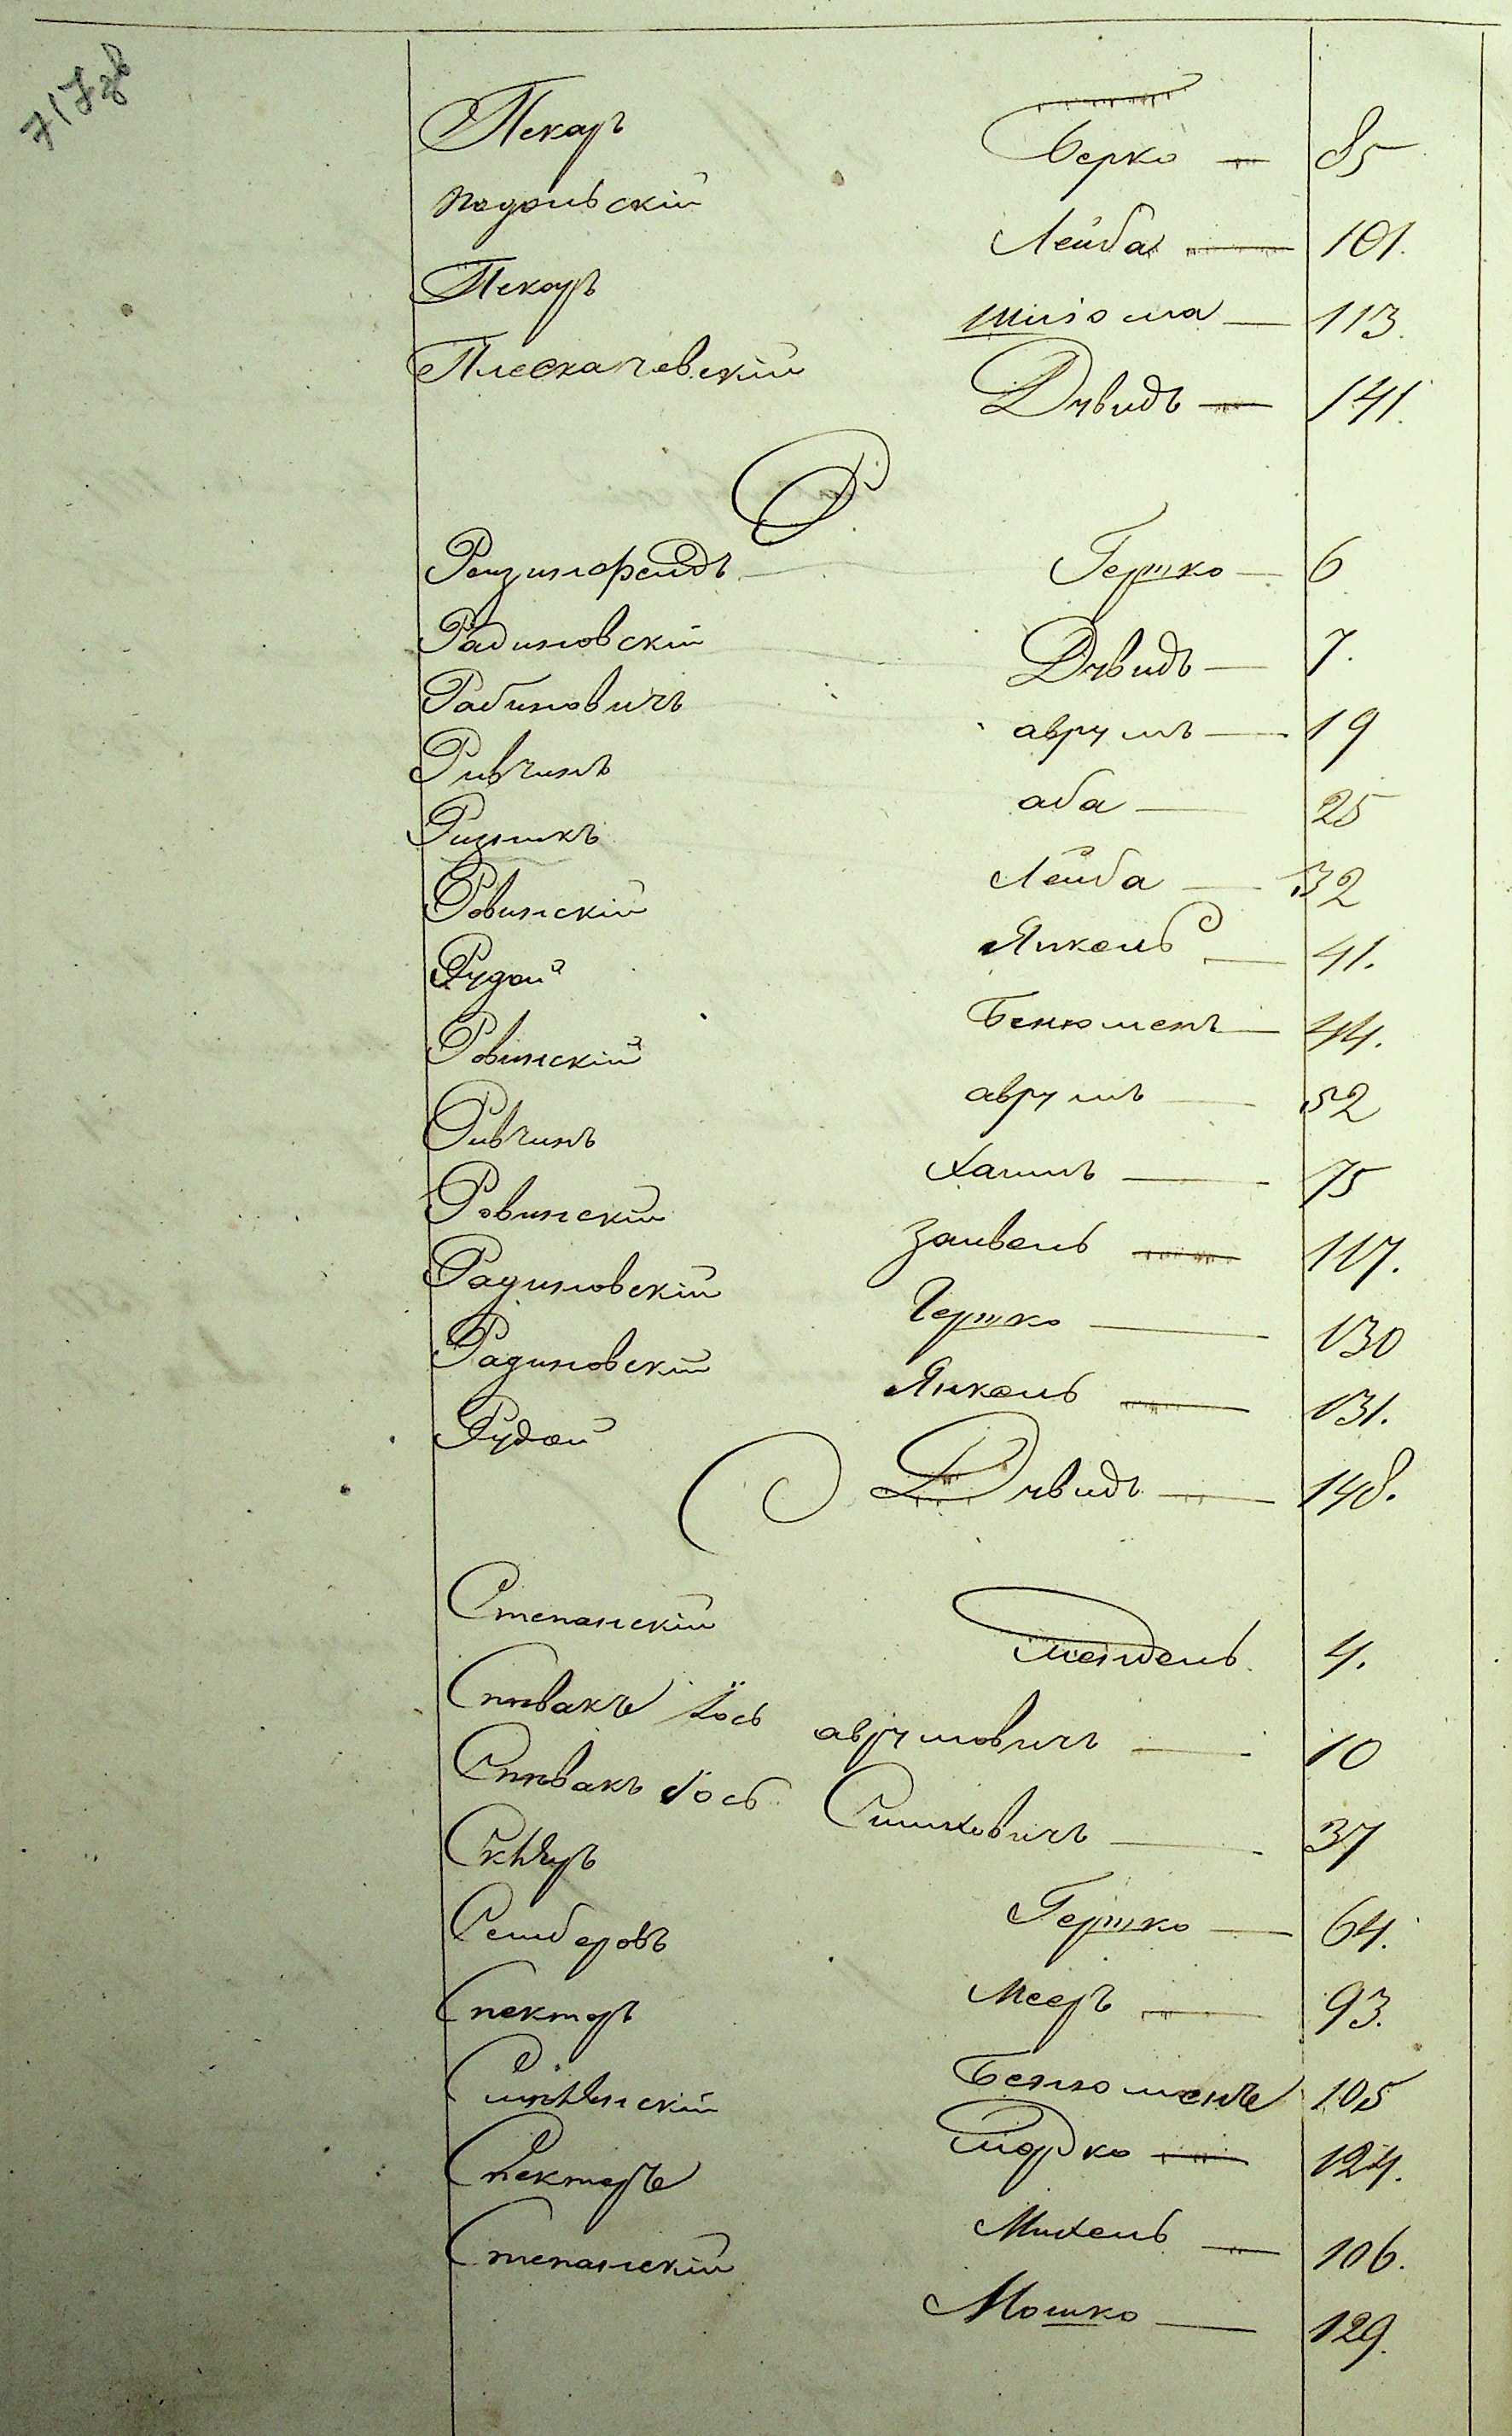 717 зв
Пекаръ Берко — 85
Подольскій Лейба — 101.
Пекаръ Шліома — 113.
Плескачевскій Дувидъ — 141.
Р
Розинфельдъ — Гершко — 6
Радиновскій Дувидъ — 7.
Рабиновичъ аврумъ — 19
Ривчинъ аба — 25
Ризникъ Лейба — 32
Ровинскій Янкель — 41.
Рудой Бенюменъ — 44.
Ровинскій аврумъ — 52
Ривчинъ Хаимъ — 75
Ровинскій Заивель — 117.
Радиновскій Гершко — 130
Радиновскій Янкель — 131.
Рудой Дувидъ — 148.
С
Степанскій Мендель 4.
Спѣвакъ Іось аврумовичъ — 10
Спѣвакъ Іось Симховичъ — 37
Скляръ Гершко — 64.
Мееръ — 93.
Спекторъ Бенюменъ 105
Мордко — 124.
Спекторъ Михель — 106.
Степанскій Мошко — 129.